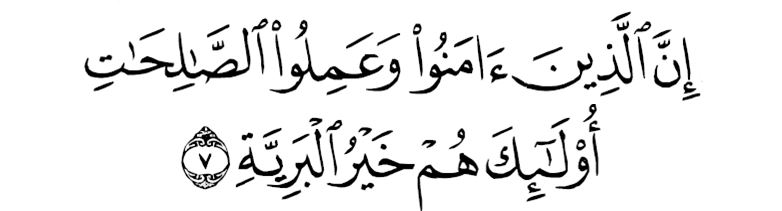 إِنَّ ٱلَّذِينَ ءَامَنُوا۟ وَعَمِلُوا۟ ٱلصَّـٰلِحَـٰتِ
أُو۟لَـٰٓئِكَ هُمْ خَيْرُ ٱلْبَرِيَّةِ ٧